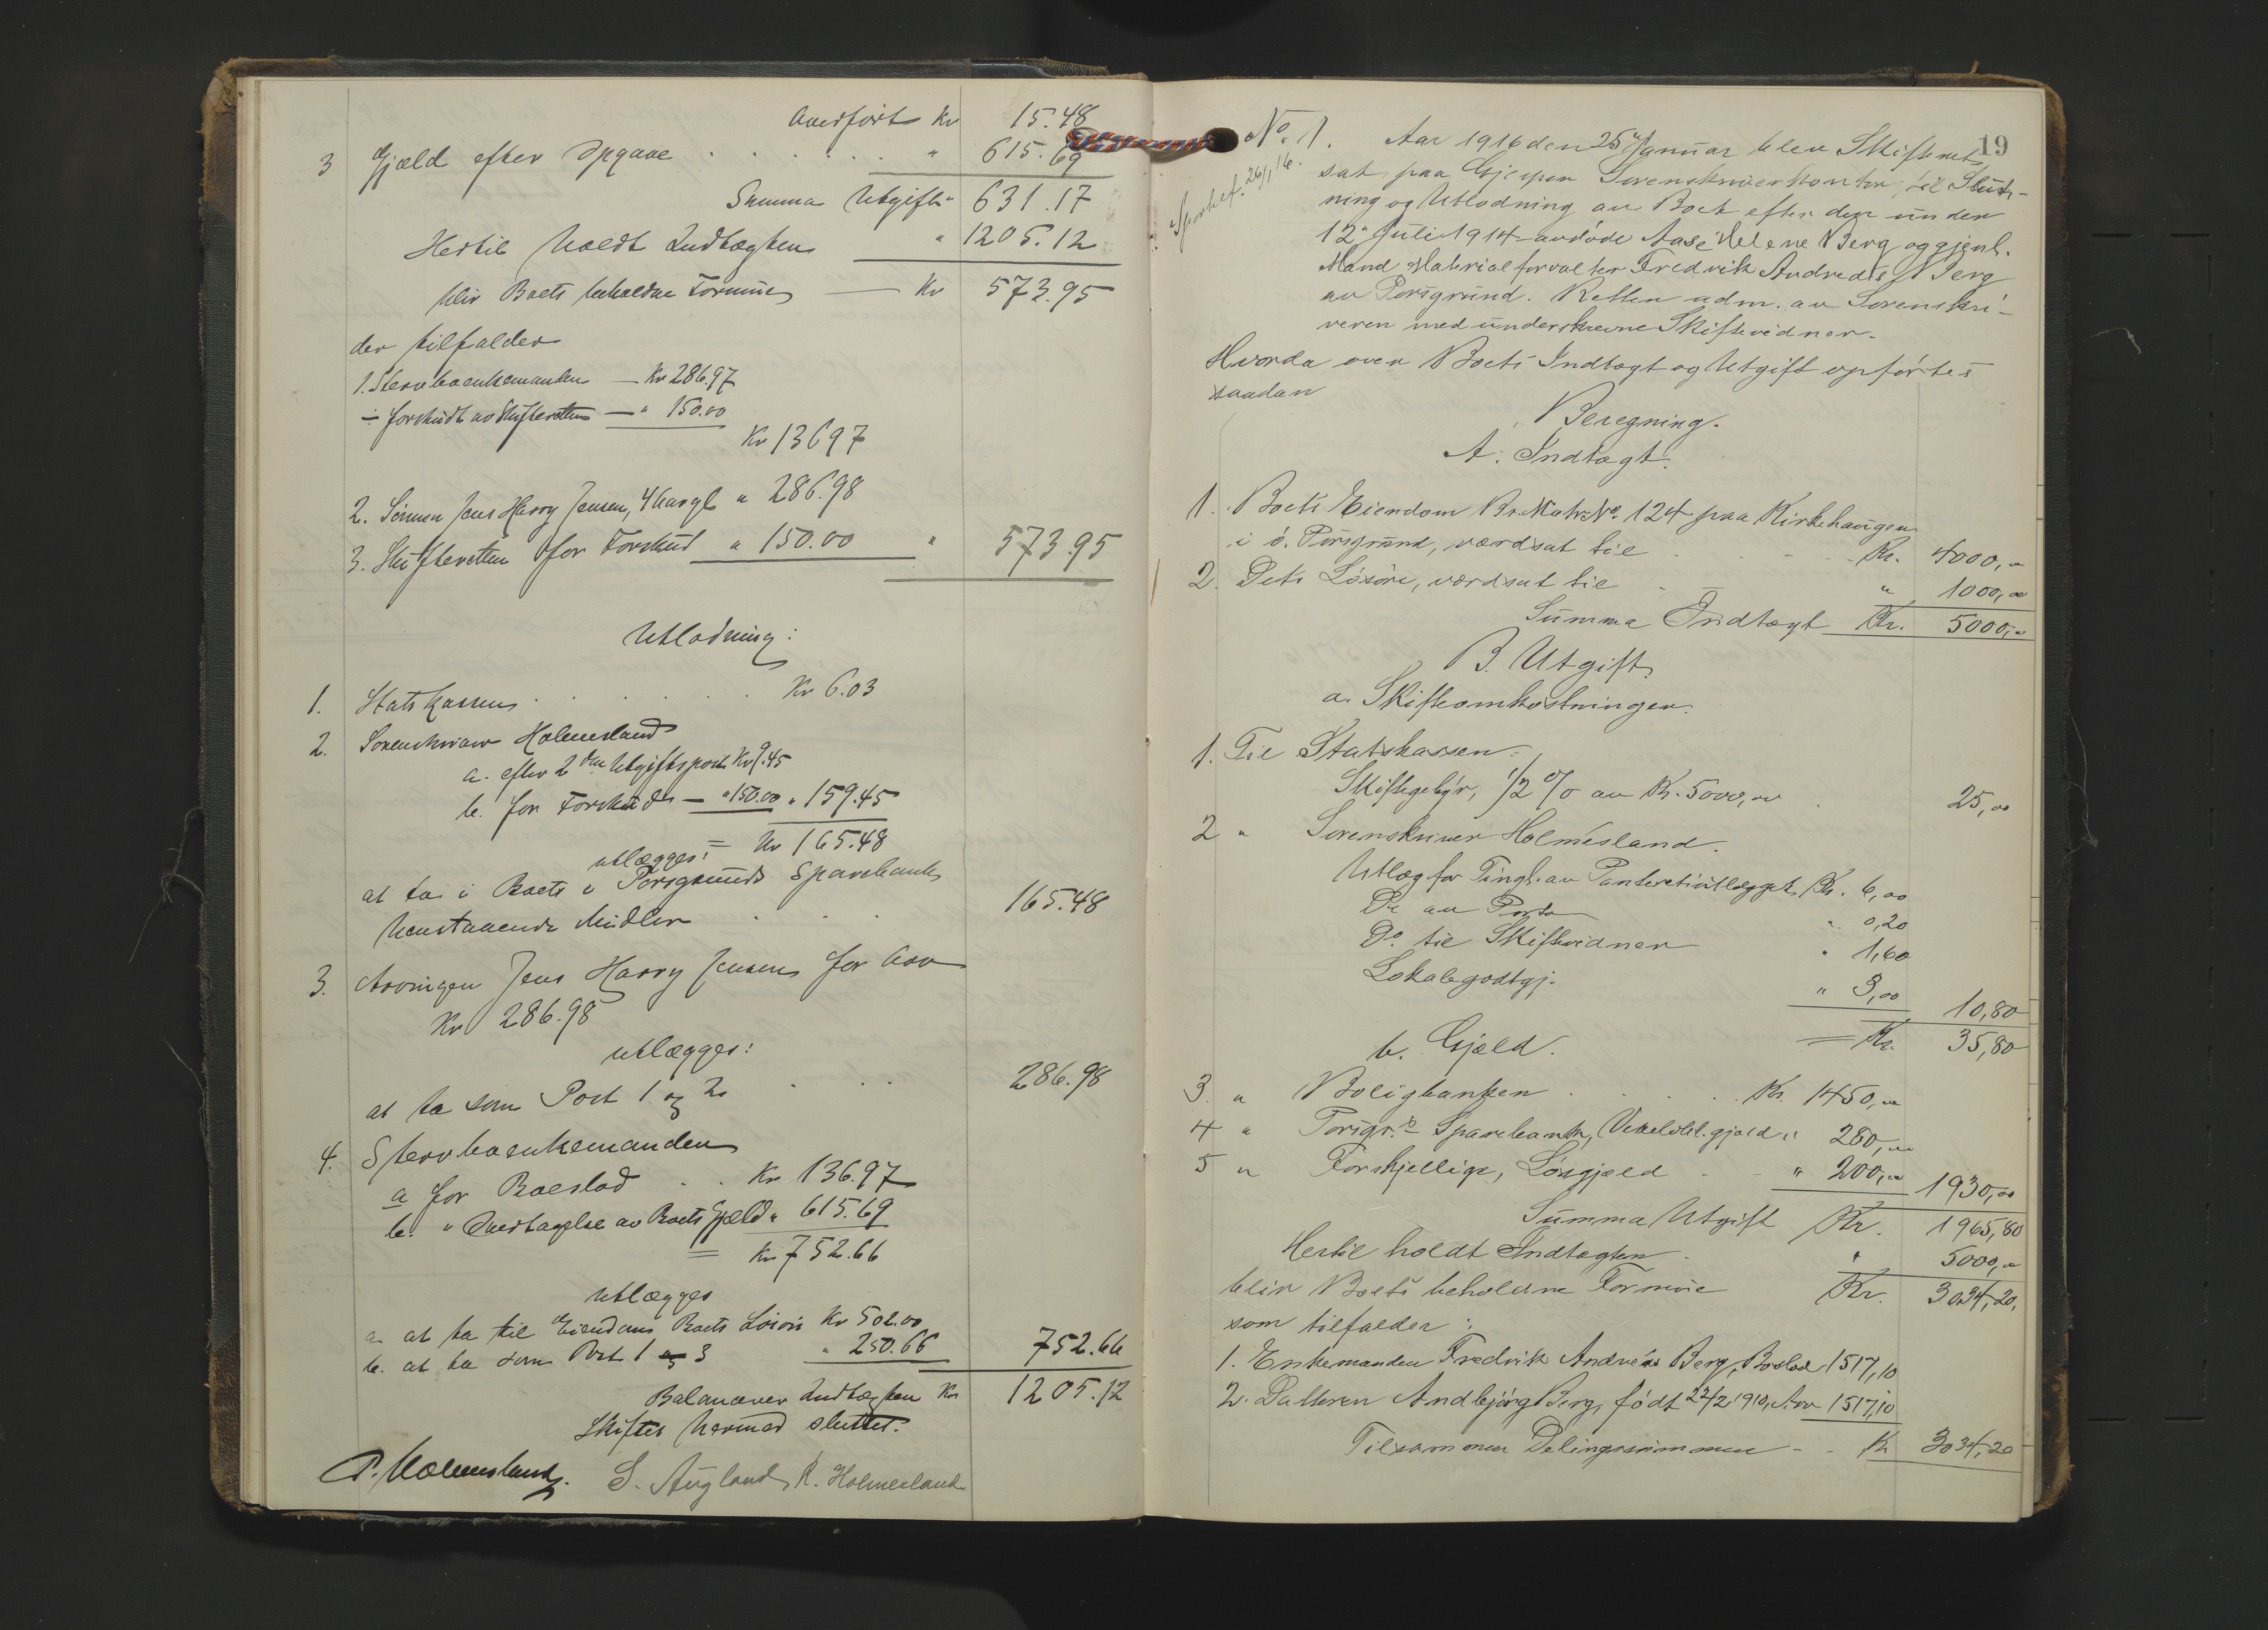 Overført Kr 15.48
3 Gjæld efter Opgave . . . . . . " 615.69
Summa Utgift " 631.17
Hertil holdt Indtægten " 1205.12
bliv Boets beholdne Formue — Kr 573.95
der tilfalder
1. Stervboenkemanden — Kr 286.97
÷ forskudt av Skifteretten — " 150.00
Kr 136 97
2. Sønnen Jens Harry Jensen, 4 aar gl " 286.98
3. Skifteretten for Forskud " 150.00 " 573.95
Utlodning:
1. Statskassen . . . . . . Kr 6.03
2. Sorenskriver Holmesland
a. efter 2den Utgiftspost Kr 9.45
b. for Forskud — " 150.00 " 159.45
= Kr 165.48
utlægges:
at ta i Boets i Porsgrunds Sparebank
henstaaende Midler . . . 165.48
3. Arvingen Jens Harry Jensen for Arv
Kr 286.98
utlægges:
at ta som Post 1 og 2 . . . 286.98
4. Stervboenkemanden
a for Boeslod . . Kr 136.97
b. " Overtagelse av Boets Gjæld " 615.69
= Kr 752.66
utlægges
a. at ta til Eiendom Boets Løsøre Kr 502.00
b. at ta som Post 1 og 3 " 250.66 752.66
Balancerer Indtægten Kr 1205.12
Skiftet hermed sluttet.
P. Holmesland. S. Augland R. Holmesland
19
No. 1. Aar 1916 den 25 Januar blev Skifteret
Sportel. 26/1 16.
sat paa Gjerpen Sorenskriverkontor til Slut-
ning og Utlodning av Boet efter den under
12 Juli 1914 avdøde Aase Helene Berg og gjenl.
Mand Materialforvalter Fredrik Andreas Berg
av Porsgrund. Retten adm. av Sorenskri-
veren med underskrevne Skiftevidner.
Hvorda over Boets Indtægt og Utgift opførtes
saadan
Beregning.
A. Indtægt.
1. Boets Eiendom Br. Matr. No. 124 paa Kirkehaugen
i ø. Porsgrund, værdsat til . . . - Kr. 4000,00
2. Dets Løsøre, værdsat til - - " 1000,00
Summa Indtægt Kr. 5000,00
B. Utgift.
a. Skifteomkostninger.
1. Til Statskassen.
Skiftegebyr, 1/2 % av Kr. 5000,00 . 25,00
2 " Sorenskriver Holmesland.
Utlæg for Tingl. av Panteretsutlægget Kr. 6,00
Do av Porto " 0,20
Do. til Skiftevidner " 1,60
Lokalegodtgj. " 3,00 10,80
= Kr. 35,80
b. Gjæld.
3. " Boligbanken . . . . Kr. 1450,00
4 " Porsgr.s Sparebank, Vekselobl. gjæld " 280,00
5 " Forskjellige, Løsgjæld - - " 200,00 1930,00
Summa Utgift Kr. 1965,80
Hertil holdt Indtægten . " 5000,00
bliv Boets beholdne Formue Kr. 3034,20,
som tilfalder:
1. Enkemanden Fredrik Andreas Berg, Boslod 1517,10
2. Datteren Andbjørg Berg, født 22/2 1910, Arv 1517,10
Tilsammen Delingssummen - - Kr 3034,20